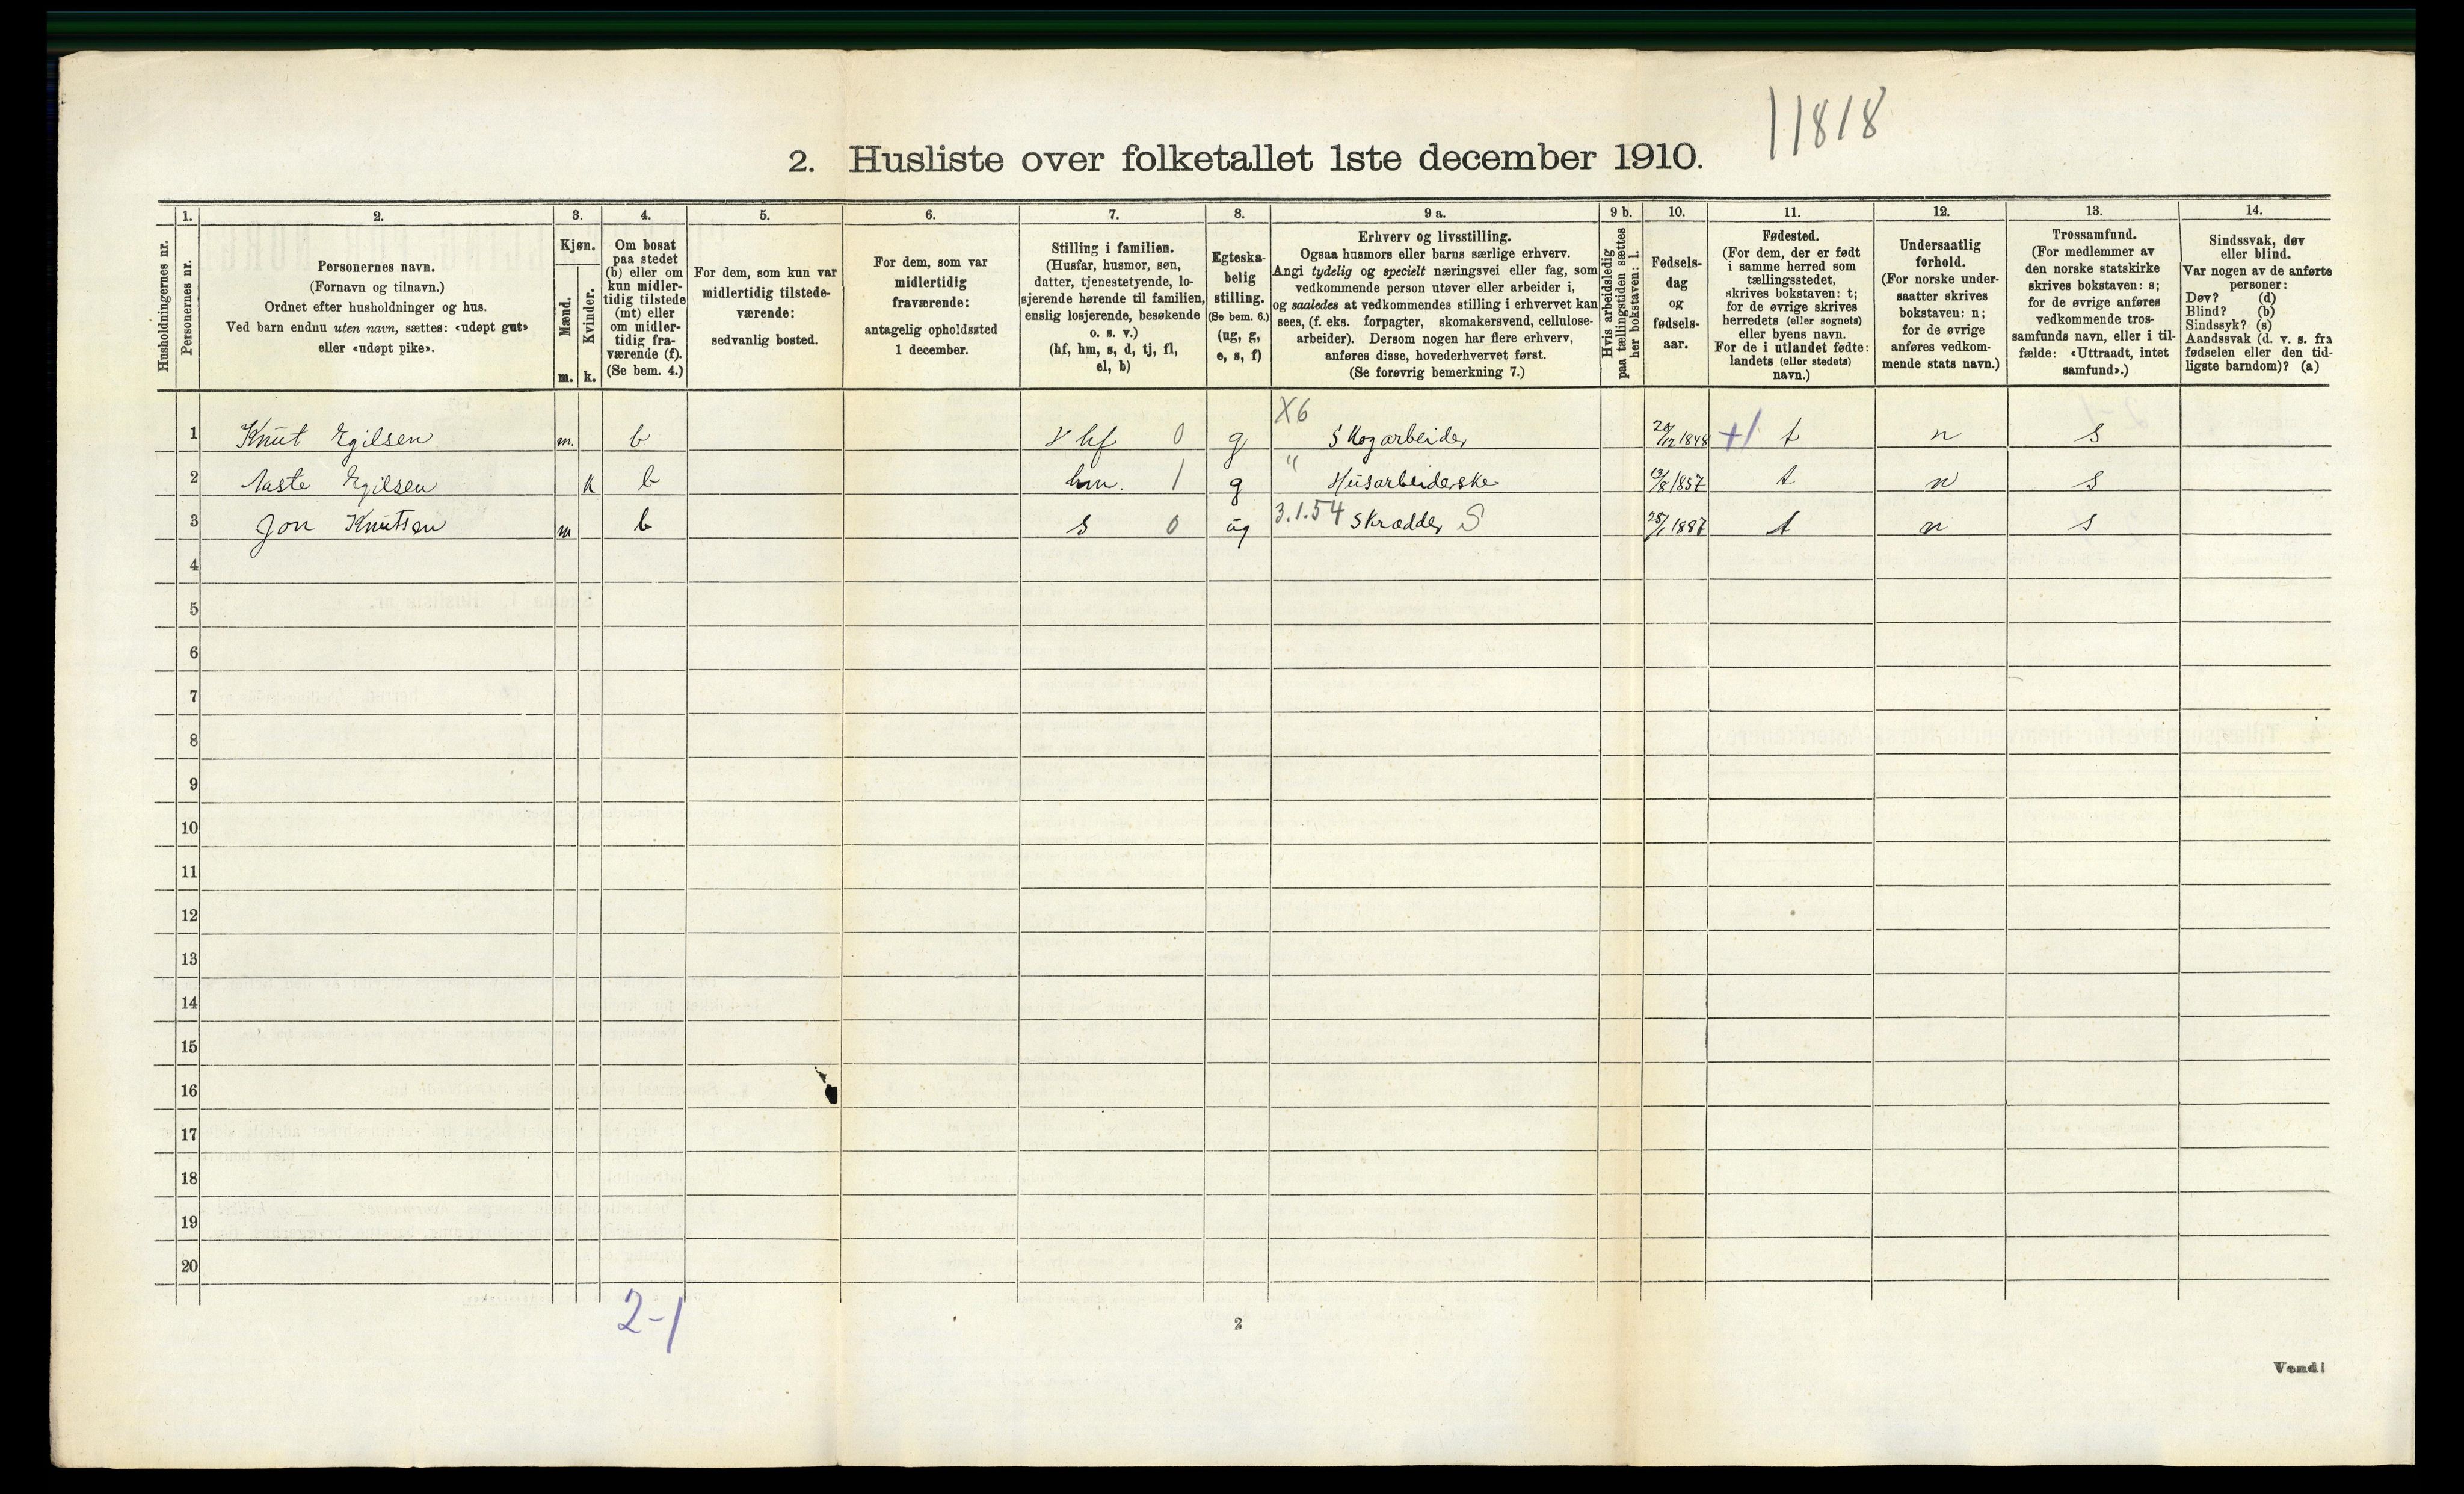 11818
2. Husliste over folketallet 1ste december 1910.
Husholdningernes nr.
1.
Personernes nr.
2.
Personernes navn.
(Fornavn og tilnavn.)
Ordnet efter husholdninger og hus.
Ved barn endnu uten navn, sættes: «udøpt gut»
eller «udøpt pike».
3.
Kjøn.
Mænd.
m.
Kvinder.
k.
4.
Om bosat
paa stedet
(b) eller om
kun midler-
tidig tilstede
(mt) eller
om midler-
tidig fra-
værende (f).
(Se bem. 4.)
5.
For dem, som kun var
midlertidig tilstede-
værende:
sedvanlig bosted.
6.
For dem, som var
midlertidig
fraværende:
antagelig opholdssted
1 december.
7.
Stilling i familien.
(Husfar, husmor, søn,
datter, tjenestetyende, lo-
sjerende hørende til familien,
enslig losjerende, besøkende
o. s. v.)
(hf, hm, s, d, tj, fl,
el, b)
8.
Egteska-
belig
stilling.
(Se bem. 6.)
(ug, g,
e, s, f)
9 a.
Erhverv og livsstilling.
Ogsaa husmors eller barns særlige erhverv.
Angi tydelig og specielt næringsvei eller fag, som
vedkommende person utøver eller arbeider i,
og saaledes at vedkommendes stilling i erhvervet kan
sees, (f. eks. forpagter, skomakersvend, cellulose-
arbeider). Dersom nogen har flere erhverv,
anføres disse, hovederhvervet først.
(Se forøvrig bemerkning 7.)
9 b.
Hvis arbeidsledig
paa tællingstiden sættes
her bokstaven: l.
10.
Fødsels-
dag
og
fødsels-
aar.
11.
Fødested.
(For dem, der er født
i samme herred som
tællingsstedet,
skrives bokstaven: t;
for de øvrige skrives
herredets (eller sognets)
eller byens navn.
For de i utlandet fødte:
landets (eller stedets)
navn.)
12.
Undersaatlig
forhold.
(For norske under-
saatter skrives
bokstaven: n;
for de øvrige
anføres vedkom-
mende stats navn.)
13.
Trossamfund.
(For medlemmer av
den norske statskirke
skrives bokstaven: s;
for de øvrige anføres
vedkommende tros-
samfunds navn, eller i til-
fælde: «Uttraadt, intet
samfund».)
14.
Sindssvak, døv
eller blind.
Var nogen av de anførte
personer:
Døv? (d)
Blind? (b)
Sindssyk? (s)
Aandssvak (d. v. s. fra
fødselen eller den tid-
ligste barndom)? (a)
X6
1 Knut Egilsen m. b hf 0 g Skogarbeider 20/12 1848 +1 t n s
2 Aaste Egilsen k b hm. 1 g " Husarbeiderske 13/8 1857 t n s
3 Jon Knutsen m b s 0 ug 3.1.54 Skrædder S 28/1 1887 t n s
4
5
6
7
8
9
10
11
12
13
14
15
16
17
18
19
20
2-1
2
Vend!